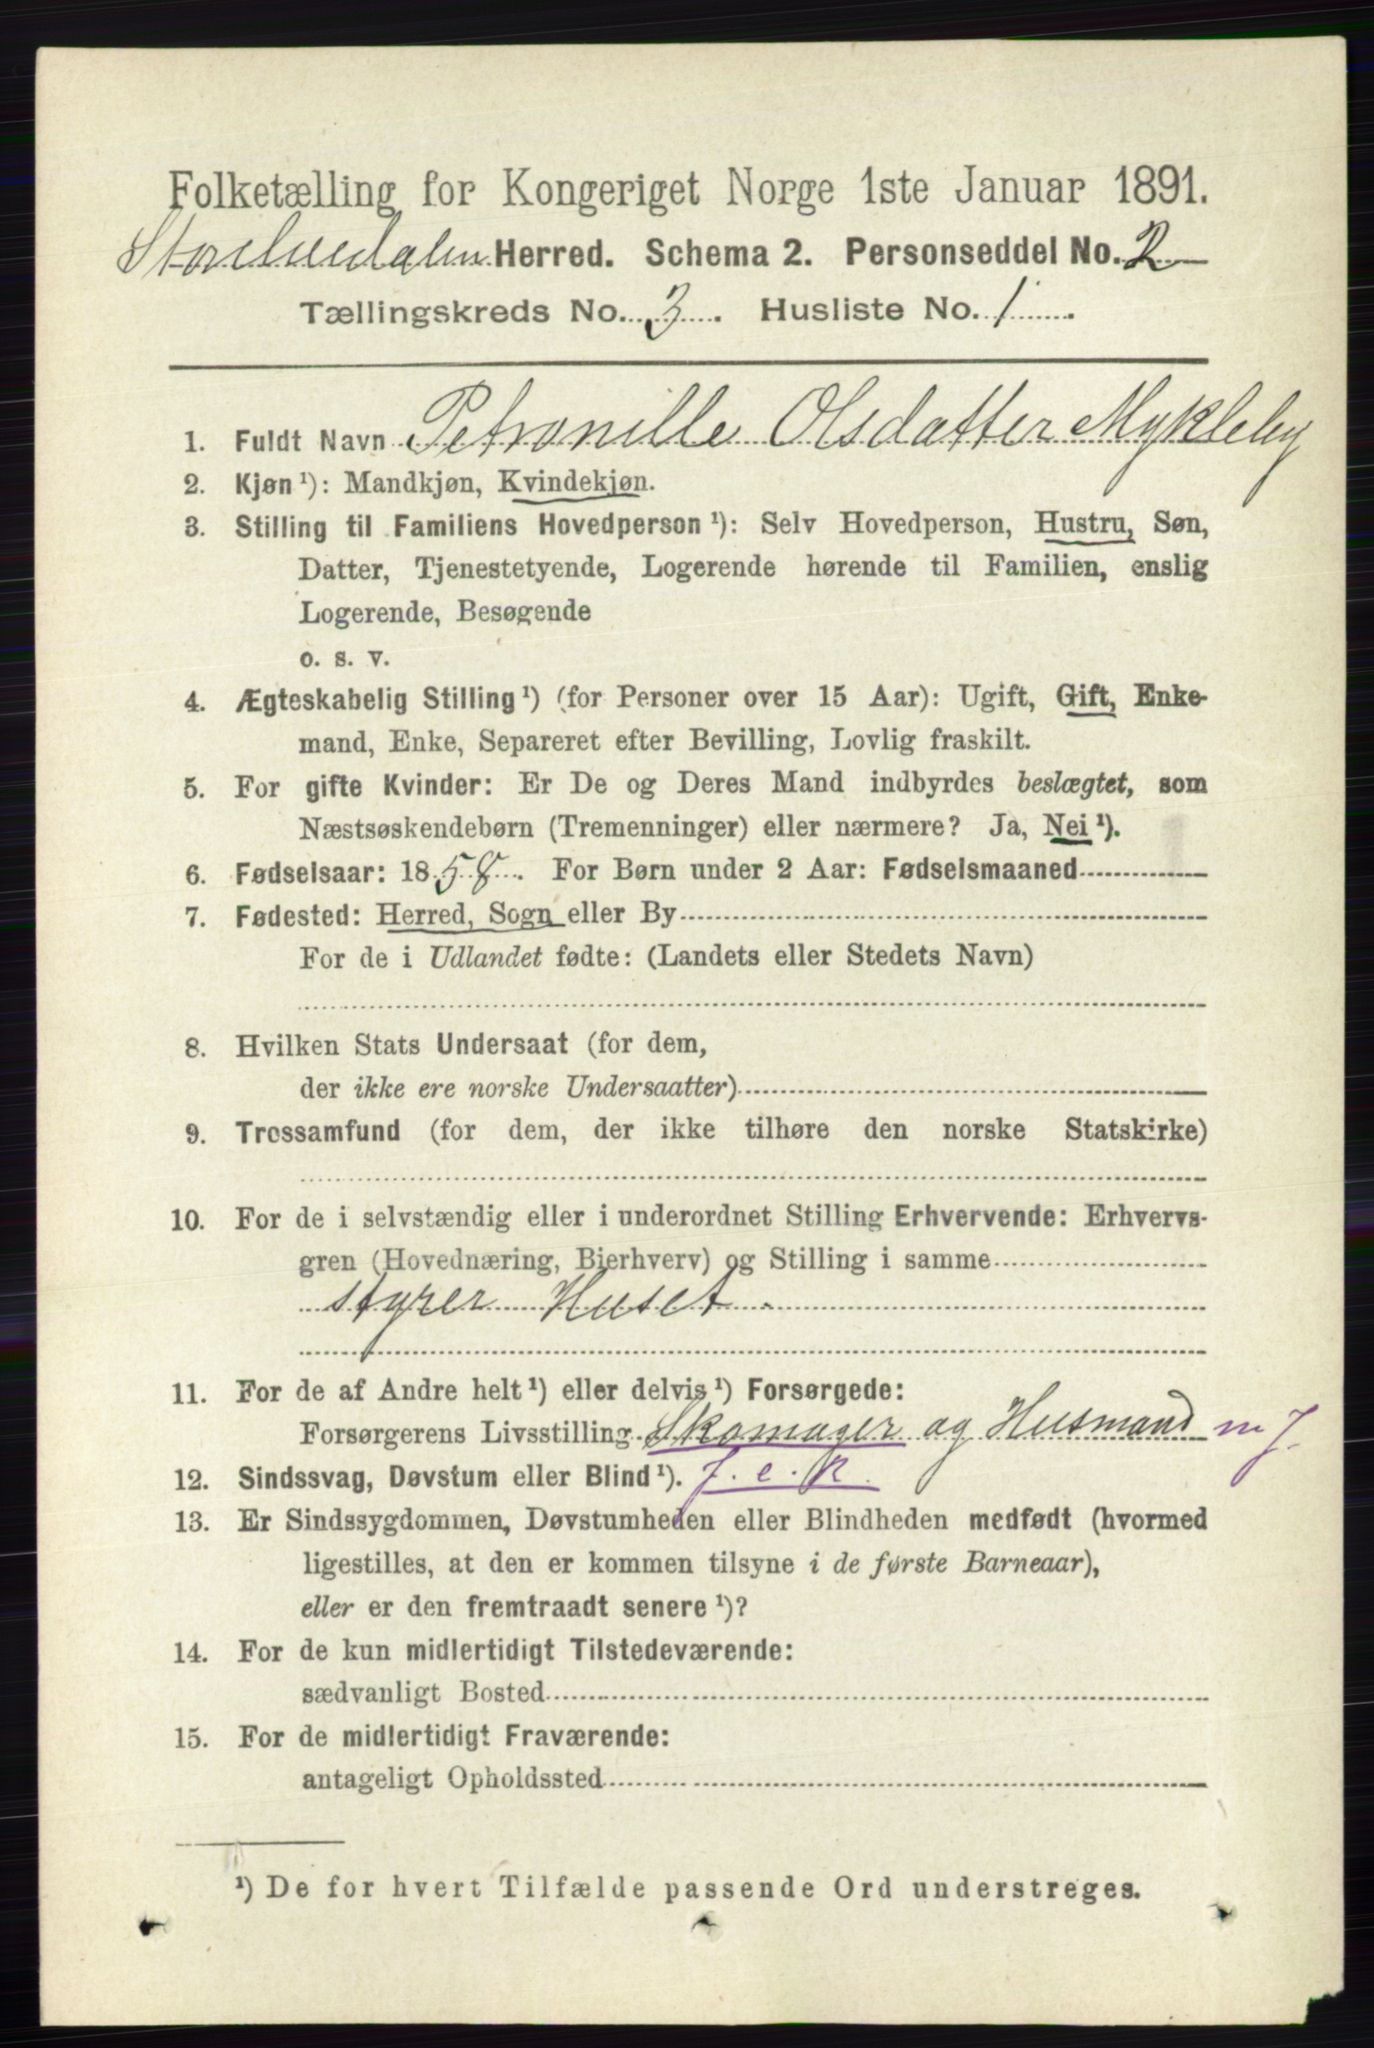 Folketælling for Kongeriget Norge 1ste Januar 1891.
Storelvedalen Herred. Schema 2. Personseddel No. 2
Tællingskreds No. 3. Husliste No. 1
1. Fuldt Navn Petronille Olsdatter Mykleby
2. Kjøn ¹): Mandkjøn, Kvindekjøn.
3. Stilling til Familiens Hovedperson ¹): Selv Hovedperson, Hustru, Søn,
Datter, Tjenestetyende, Logerende hørende til Familien, enslig
Logerende, Besøgende
o. s. v.
4. Ægteskabelig Stilling ¹) (for Personer over 15 Aar): Ugift, Gift, Enke-
mand, Enke, Separeret efter Bevilling, Lovlig fraskilt.
5. For gifte Kvinder: Er De og Deres Mand indbyrdes beslægtet, som
Næstsøskendebørn (Tremenninger) eller nærmere? Ja, Nei ¹).
6. Fødselsaar: 1858. For Børn under 2 Aar: Fødselsmaaned
7. Fødested: Herred, Sogn eller By
For de i Udlandet fødte: (Landets eller Stedets Navn)
8. Hvilken Stats Undersaat (for dem,
der ikke ere norske Undersaatter)
9. Trossamfund (for dem, der ikke tilhøre den norske Statskirke)
10. For de i selvstændig eller i underordnet Stilling Erhvervende: Erhvervs-
gren (Hovednæring, Bierhverv) og Stilling i samme
styrer Huset.
11. For de af Andre helt ¹) eller delvis ¹) Forsørgede:
Forsørgerens Livsstilling Skomager og Husmand m J.
12. Sindssvag, Døvstum eller Blind ¹). f. e. R.
13. Er Sindssygdommen, Døvstumheden eller Blindheden medfødt (hvormed
ligestilles, at den er kommen tilsyne i de første Barneaar),
eller er den fremtraadt senere ¹)?
14. For de kun midlertidigt Tilstedeværende:
sædvanligt Bosted
15. For de midlertidigt Fraværende:
antageligt Opholdssted
¹) De for hvert Tilfælde passende Ord understreges.